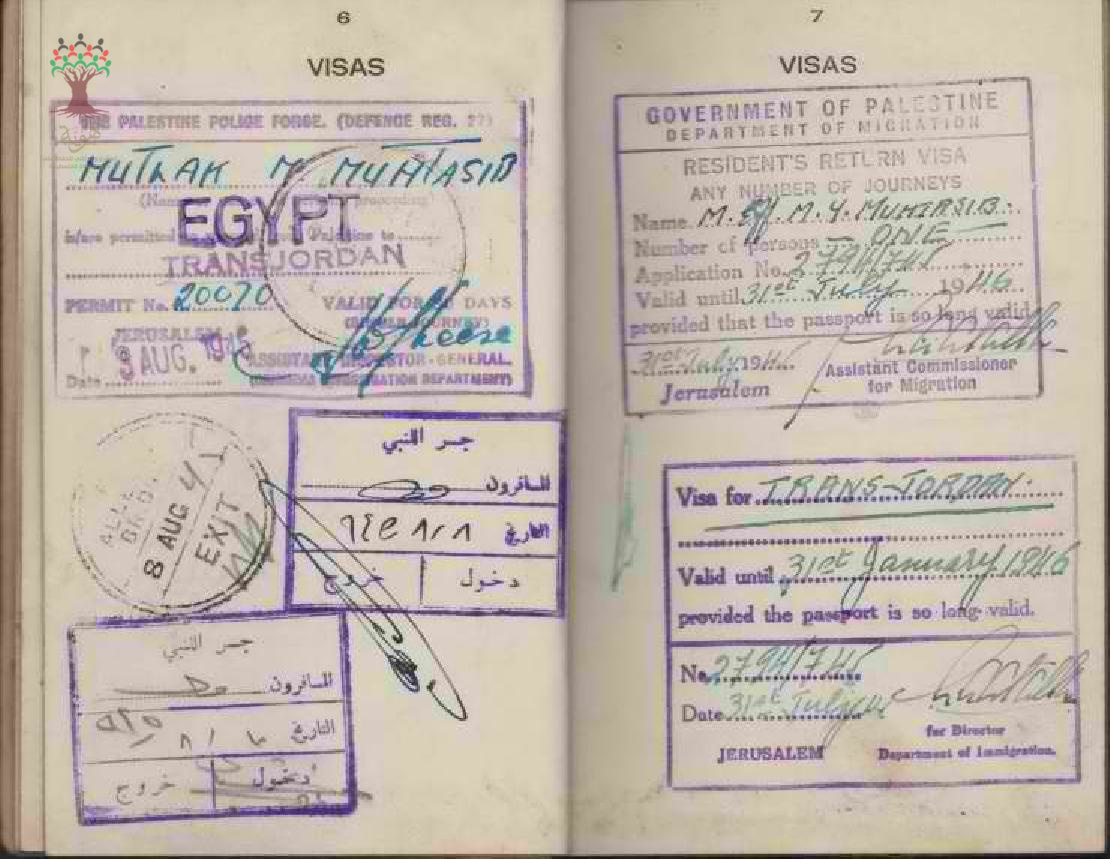 6
VISAS
THE PALESTINE POLICE FORCE. (DEFENCE REG. 27)
MUTLAK M. MUHTASIB
EGYPT
is/are permitted Palestine to
TRANSJORDAN
PERMIT No. 20070 VALID FOR DAYS
JERUSALEM
9 AUG. 1945
ASSISTANT INSPECTOR-GENERAL.
Date
8 AUG 4
EXIT
جسر اللنبي
المسافرون
التاريخ
دخول خروج
جسر اللنبي
المسافرون
التاريخ
دخول خروج
7
VISAS
GOVERNMENT OF PALESTINE
DEPARTMENT OF MIGRATION
RESIDENT'S RETURN VISA
ANY NUMBER OF JOURNEYS
Name M. M. Y. MUHTASIB.
Number of persons — ONE —
Application No. 2794/745
Valid until 31st July 1946
provided that the passport is so long valid
31st July 1945
Assistant Commissioner
Jerusalem for Migration
Visa for TRANS-JORDAN.
Valid until 31st January 1946
provided the passport is so long valid.
No. 2794/745
Date 31st July
for Director
JERUSALEM Department of Immigration.